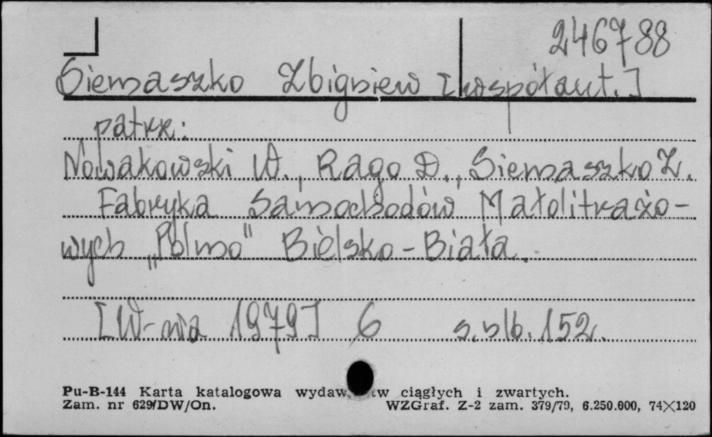 246788
Siemaszko Zbigniew [współaut.]
patrz:
Nowakowski W., Rago D., Siemaszko Z.
Fabryka Samochodów Małolitrażo-
wych "Polmo" Bielsko-Biała.
[W-wa 1979] 6 s.slb.152.
Pu-B-144 Karta katalogowa wydaw w ciągłych i zwartych.
Zam. nr 629/DW/On. WZGraf. Z-2 zam. 379/79, 6.250.000, 74×120